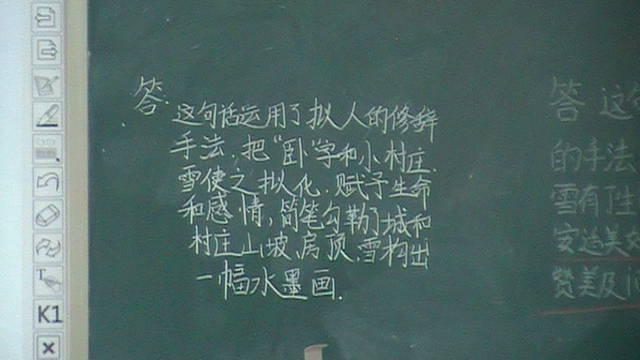 答
这句话运用了拟人的修辞
手法,把“卧”字和小村庄.
雪使之拟化.赋予生命
和感情,简笔勾勒了城和
村庄.山坡、房顶、雪构出
一幅水墨画.
答 这句
的手法
雪有了生
安适美
赞美及
K1
T